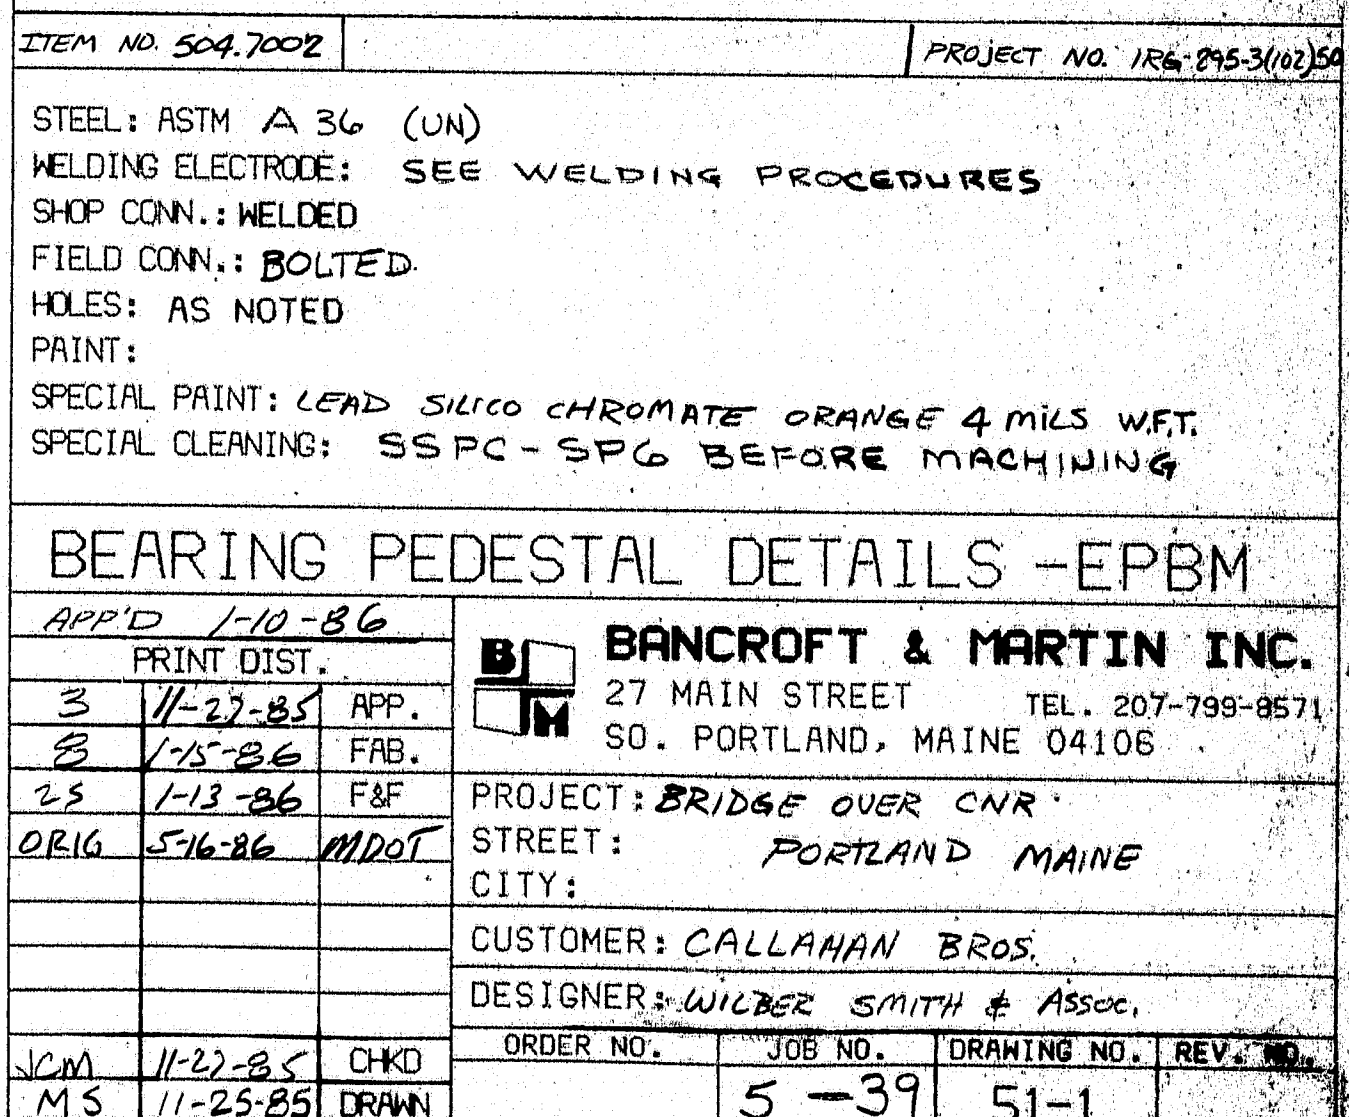 ITEM NO. 504.7002
PROJECT NO. IRG-295-3(102)50
STEEL: ASTM A 36 (UN)
WELDING ELECTRODE: SEE WELDING PROCEDURES
SHOP CONN.: WELDED
FIELD CONN.: BOLTED.
HOLES: AS NOTED
PAINT:
SPECIAL PAINT: LEAD SILICO CHROMATE ORANGE 4 MILS W.F.T.
SPECIAL CLEANING: SSPC-SP6 BEFORE MACHINING
BEARING PEDESTAL DETAILS -EPBM
APP'D 1-10-86
PRINT DIST.
3 11-27-85 APP.
8 1-15-86 FAB.
25 1-13-86 F&F
ORIG 5-16-86 MDOT
JCM 11-27-85 CHKD
MS 11-25-85 DRAWN
B
M
BANCROFT & MARTIN INC.
27 MAIN STREET TEL. 207-799-8571
SO. PORTLAND, MAINE 04106
PROJECT: BRIDGE OVER CNR
STREET: PORTLAND MAINE
CITY:
CUSTOMER: CALLAHAN BROS.
DESIGNER: WILBER SMITH & ASSOC.
ORDER NO. JOB NO. DRAWING NO. REV. NO.
5-39 51-1